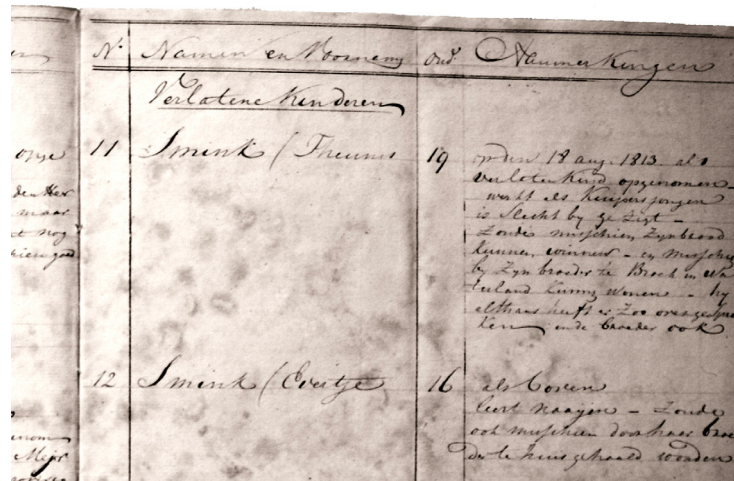 N.º Namen en Voornamen oud Aanmerkingen
Verlatene Kinderen
11 Smink (Theunis 19 op den 18 aug. 1813. als
verlaten Kind opgenomen -
werkt als Kuijpersjongen
is Slecht by gezigt -
Zoude misschien Zyn brood
Kunnen winnen - en misschien
by Zyn broeder te Broek in Wa
terland Kunnen wonen - hy
althans heeft er Zoo over gespro
Ken en de broeder ook
12 Smink (Evertje 16 als boven
leert naayen - Zoude
ook misschien door haar broe
der te huis gehaald worden
onze
maar
nog
Meijr